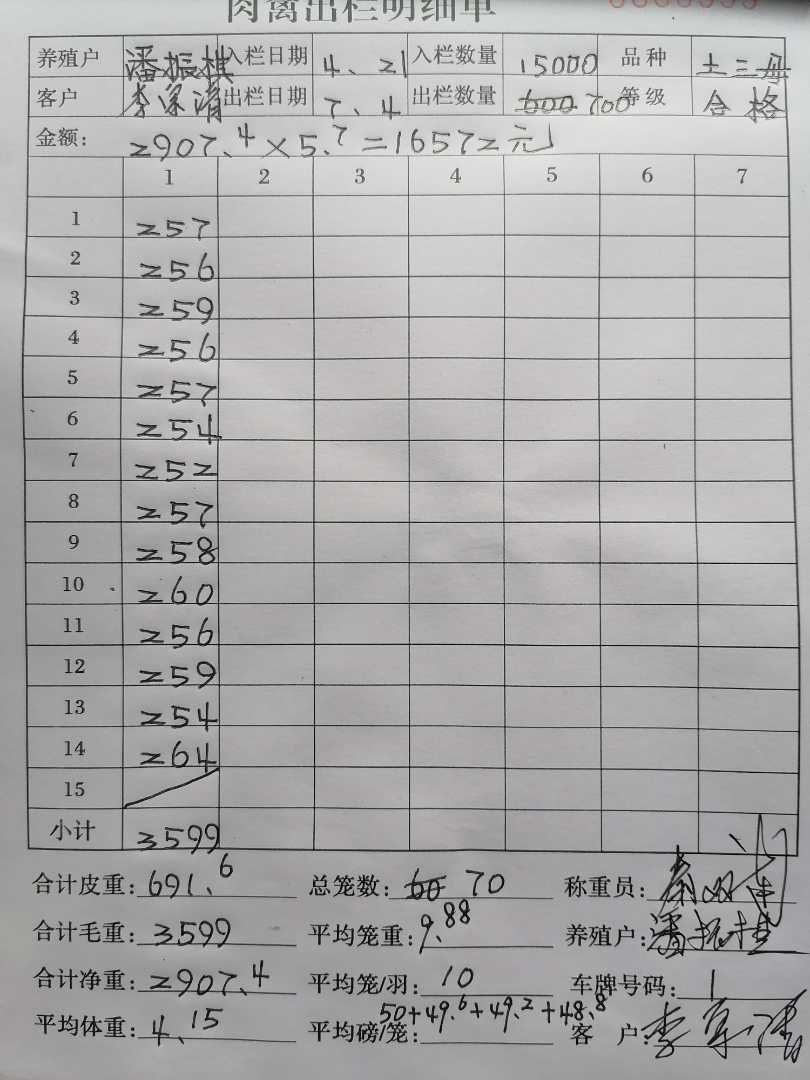 肉禽出栏明细单
养殖户 潘振棋 入栏日期 4、21 入栏数量 15000 品种 土三母
客户 出栏日期 7、4 出栏数量 600 700 等级 合格
金额: 2907.4×5.7=16572元
1 2 3 4 5 6 7
1 257
2 256
3 259
4 256
5 257
6 254
7 252
8 257
9 258
10 260
11 256
12 259
13 254
14 264
15
小计 3599
合计皮重: 691.6 总笼数: 60 70 称重员:
合计毛重: 3599 平均笼重: 9.88 养殖户: 潘振
合计净重: 2907.4 平均笼/羽: 10 车牌号码: 1
平均体重: 4.15 平均磅/笼: 50+49.6+49.2+48.8 客 户: 李